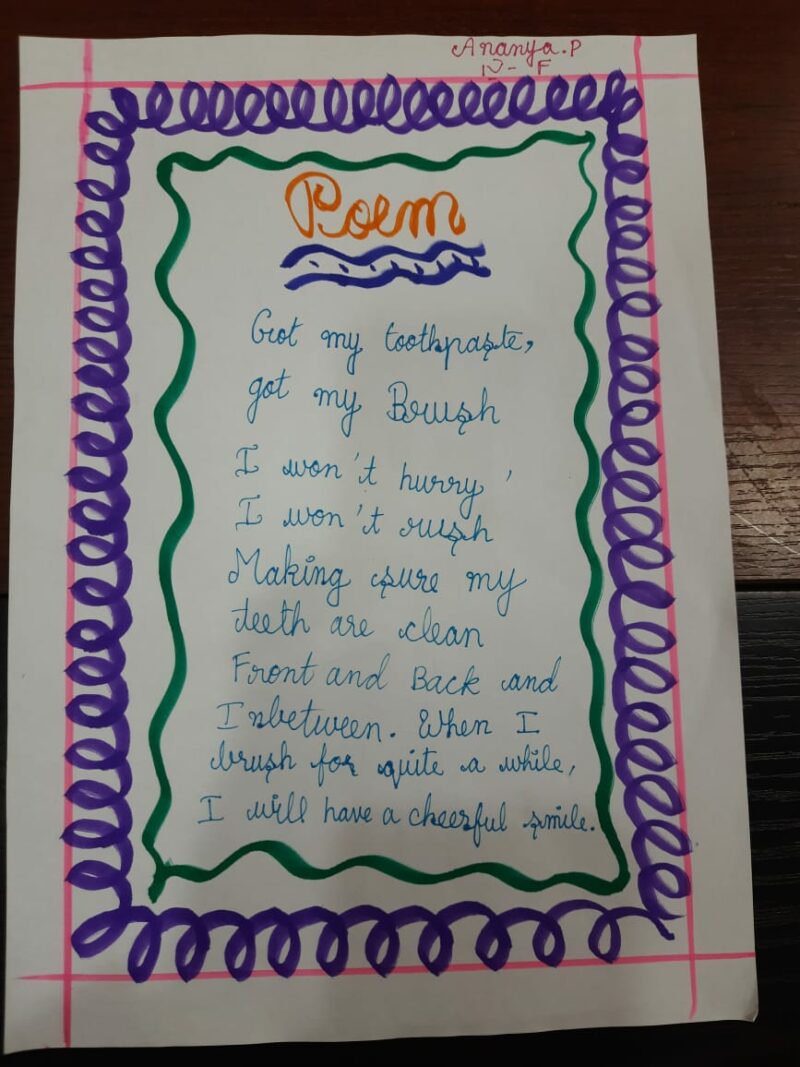 Ananya.P
IV - F
Poem
Got my toothpaste,
got my Brush
I won't hurry '
I won't rush
Making sure my
teeth are clean
Front and Back and
Inbetween. When I
brush for quite a while,
I will have a cheerful smile.